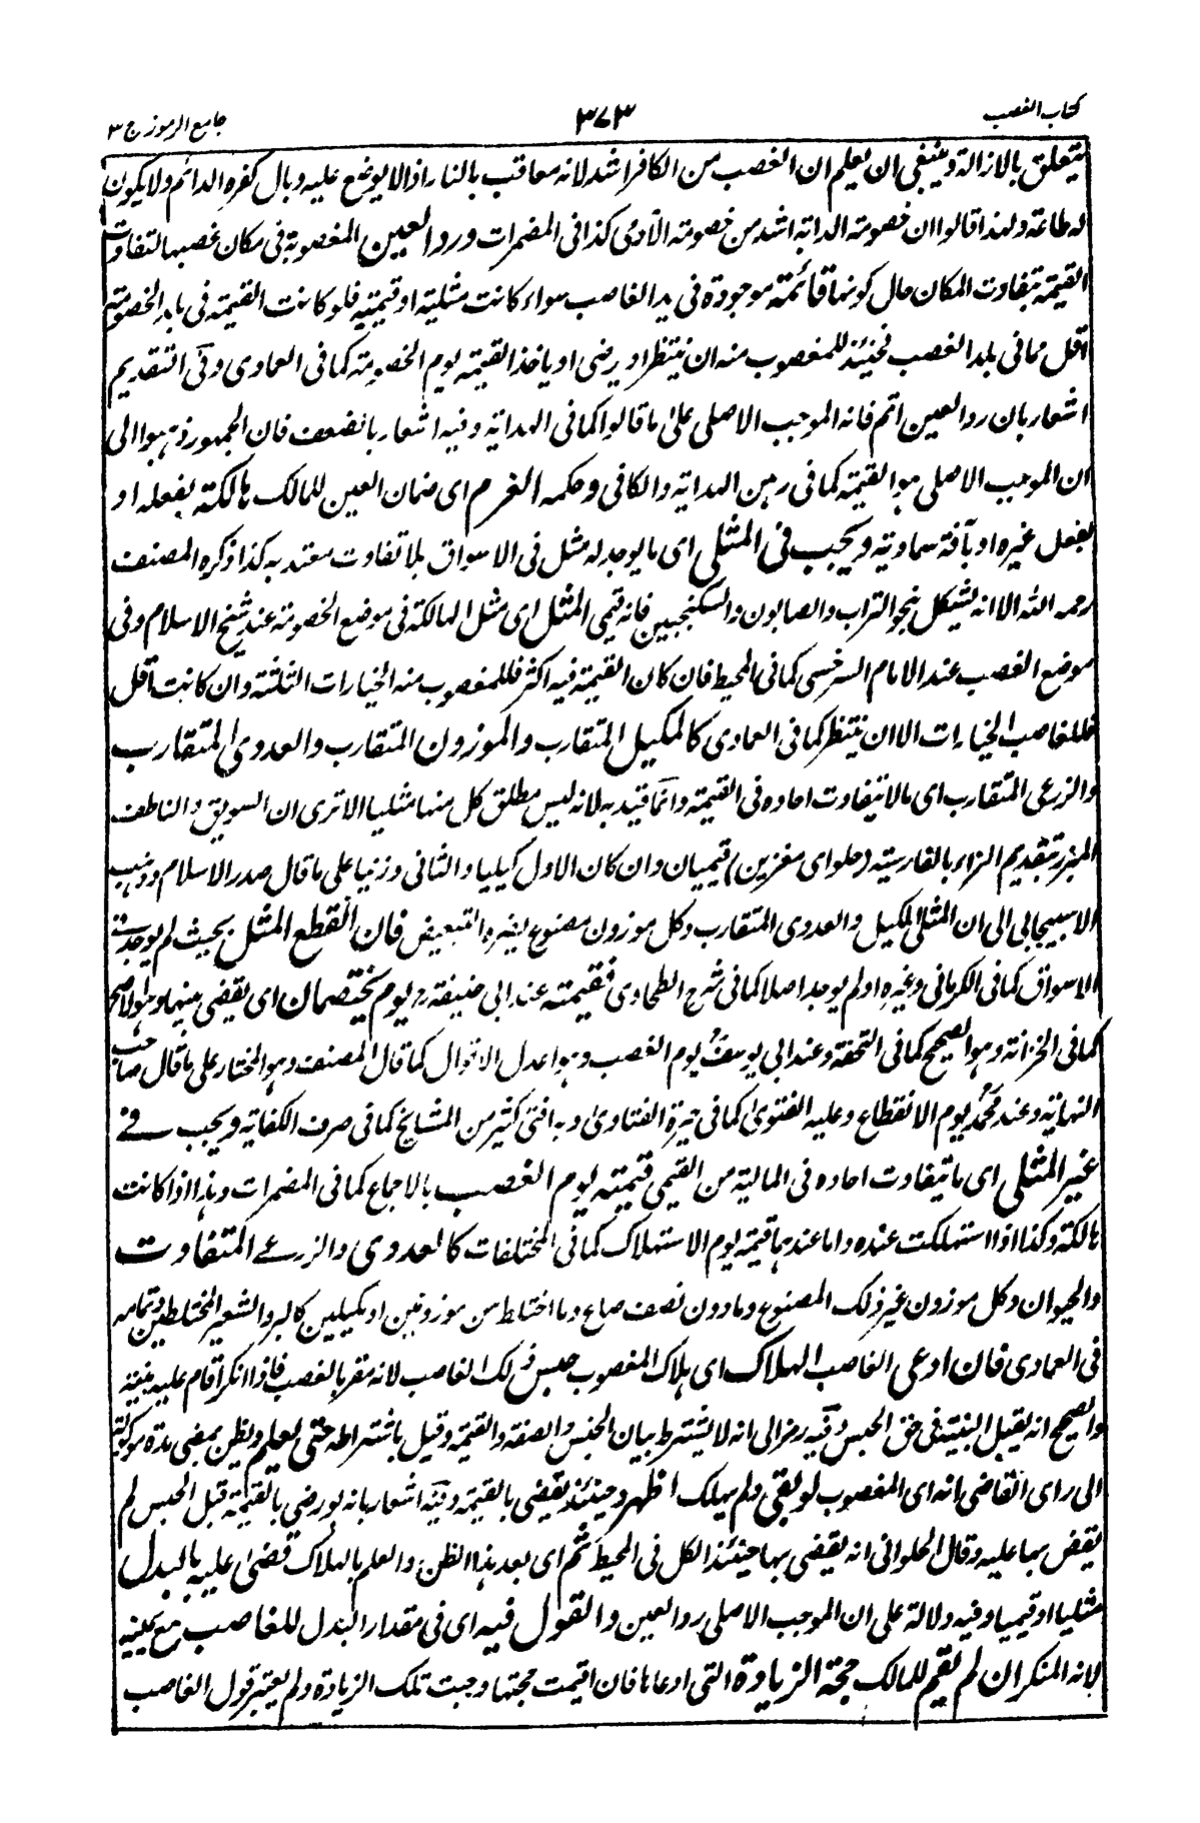 كتاب الغصب
٣٧٣
جامع الرموز ج ٣
يتعلق بالازالة وينبغي ان يعلم ان الغصب من الكافر اشد لانه معاقب بالنار اذ لا يوضع عليه وبال كفره الدائم ولا يكون
له طاعة ولهذا قالوا ان خصومة الدابة اشد من خصومة الآدمي كذا في المضمرات ورد العين المغصوبة في مكان غصبها لتفاوت
القيمة بتفاوت المكان حال كونها قائمة موجودة في يد الغاصب سواء كانت مثلية او قيمية فلو كانت القيمة في بلد الخصومة
اقل مما في بلد الغصب فحينئذ للمغصوب منه ان ينتظر او يرضى او ياخذ القيمة يوم الخصومة كما في العمادي وفي التقديم
اشعار بان رد العين اتم فانه الموجب الاصلي على ما قالوا كما في الهداية وفيه اشعار بالضعف فان الجمهور ذهبوا الى
ان الموجب الاصلي هو القيمة كما في رهن الهداية والكافي وحكمه الغرم اي ضمان العين للمالك هالكة بفعله او
بفعل غيره او بآفة سماوية ويجب في المثلي اي ما يوجد له مثل في الاسواق بلا تفاوت معتد به كذا ذكره المصنف
رحمه الله الا انه يشكل بنحو التراب والصابون والسكنجبين فانه قيمي المثل اي مثل الهالكة في موضع الخصومة عند شيخ الاسلام وفي
موضع الغصب عند الامام السرخسي كما في المحيط فان كان القيمة فيه اكثر فللمغصوب منه الخيارات الثلثة وان كانت اقل
فللغاصب الخيارات الا ان ينتظر كما في العمادي كالمكيل المتقارب والموزون المتقارب والعددي المتقارب
والزرعي المتقارب اي ما لا يتفاوت احاده في القيمة وانما قيد به لانه ليس مطلق كل منها مثليا الا ترى ان السويق والناطف
المبزر بتقديم الزاء بالفارسية (حلواي مغزين) قيميان وان كان الاول كيليا والثاني وزنيا على ما قال صدر الاسلام وذهب
الاسبيجابي الى ان المثلي المكيل والعددي المتقارب وكل موزون مصنوع يضره التبعيض فان انقطع المثل بحيث لم يوجد في
الاسواق كما في الكرماني وغيره او لم يوجد اصلا كما في شرح الطحاوي فقيمته عند ابي حنيفة رح يوم يختصمان اي يقضي بينهما وهو الاصح
كما في الخزانة وهو الصحيح كما في التحفة وعند ابي يوسف يوم الغصب وهو اعدل الاقوال كما قال المصنف وهو المختار على ما قال صاحب
النهاية وعند محمد يوم الانقطاع وعليه الفتوى كما في ذخيرة الفتاوى وبه افتى كثير من المشايخ كما في صرف الكفاية ويجب في
غير المثلي اي ما يتفاوت احاده في المالية من القيمي قيمته يوم الغصب بالاجماع كما في المضمرات وهذا اذا كانت
هالكة وكذا اذا استهلكت عنده واما عندهما قيمة يوم الاستهلاك كما في المختلفات كالعددي والزرعي المتفاوت
والحيوان وكل موزون غير ذلك المصنوع وما دون نصف صاع وما اختلط من موزونين او مكيلين كالبر والشعير المختلطين وتمامه
في العمادي فان ادعى الغاصب الهلاك اي هلاك المغصوب حبس ذلك الغاصب لانه مقر بالغصب فاذا انكر اقام عليه بينة
والصحيح انه يقبل البينة في حق الحبس وفيه رمز الى انه لا يشترط بيان الجنس والصفة والقيمة وقيل باشتراطه حتى يعلم ويظن بمضي مدة موكولة
الى راي القاضي انه اي المغصوب لو بقي ولم يهلك اظهر وحينئذ يقضي بالقيمة وفيه اشعار بانه لو رضي بالقيمة قبل الحبس لم
يقض بها عليه وقال الحلواني انه يقضي بها حينئذ الكل في المحيط ثم اي بعد هذا الظن والعلم بالهلاك قضى عليه بالبدل
مثليا او قيميا وفيه دلالة على ان الموجب الاصلي رد العين والقول فيه اي في مقدار البدل للغاصب مع يمينه
لانه المنكر ان لم تقم للمالك حجة الزيادة التي ادعاها فان اقيمت حجتها وجبت تلك الزيادة ولم يعتبر قول الغاصب